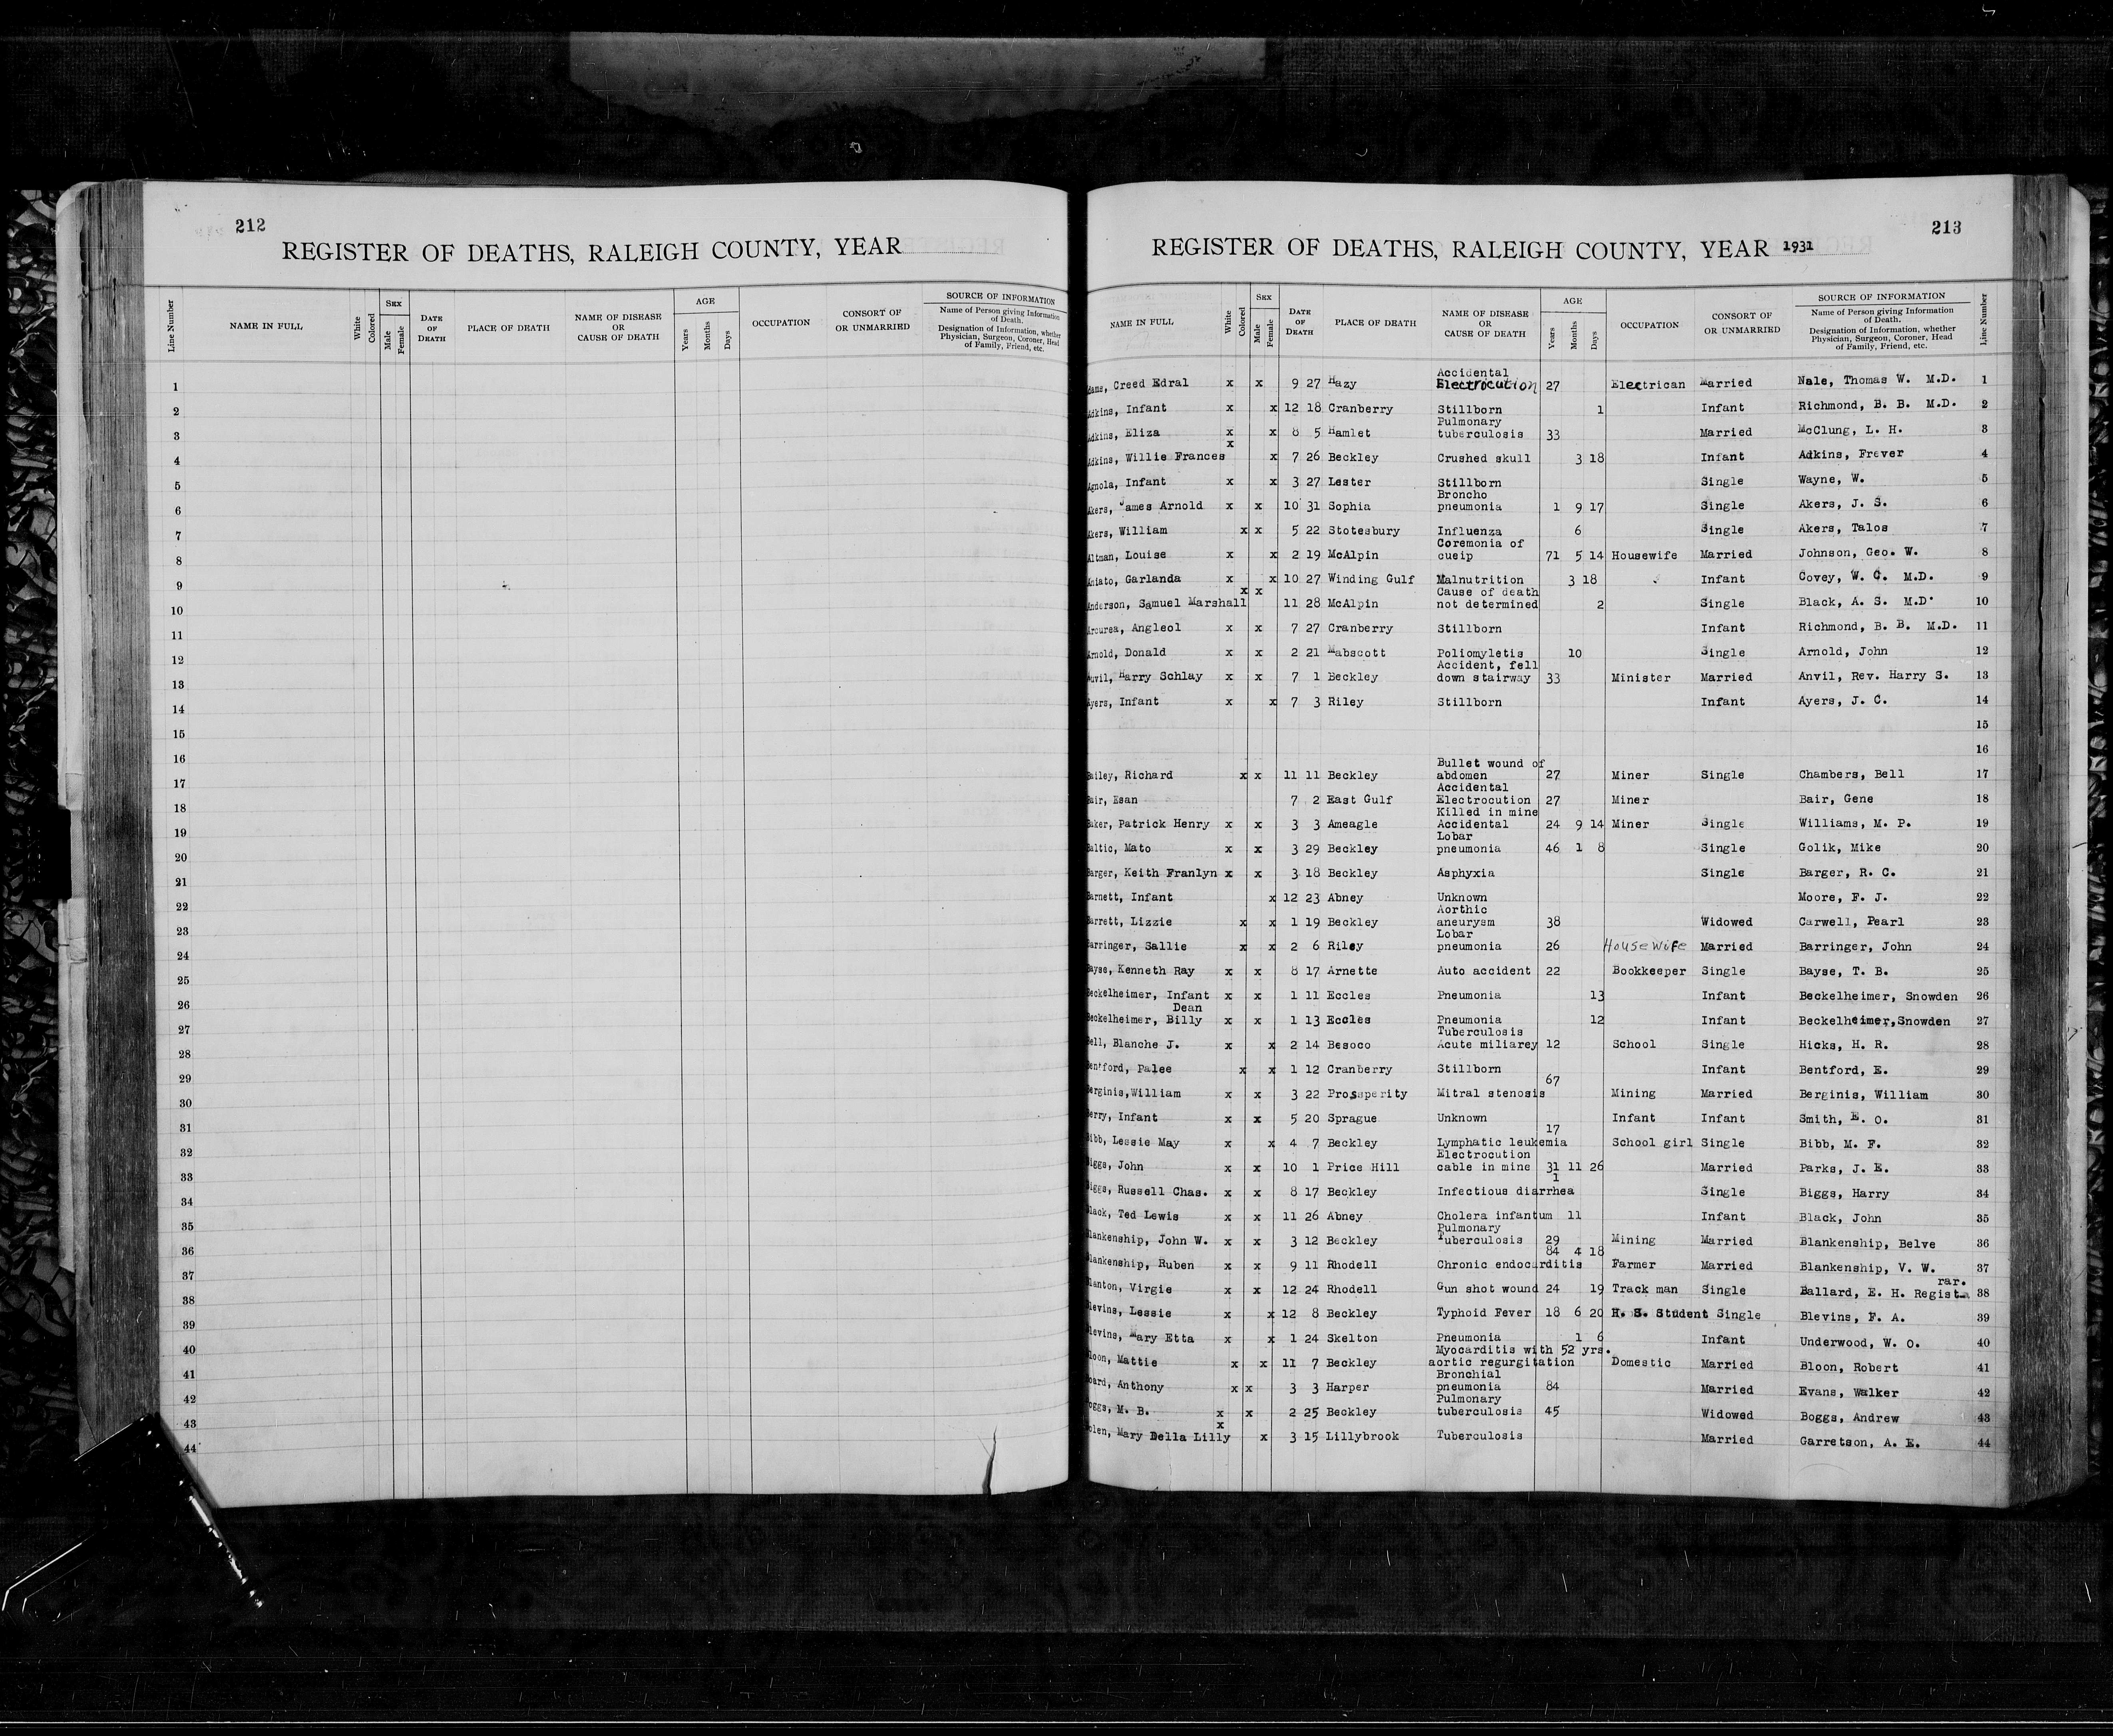 212
REGISTER OF DEATHS, RALEIGH COUNTY, YEAR
Line Number NAME IN FULL White Colored SEX Male Female DATE OF DEATH PLACE OF DEATH NAME OF DISEASE OR CAUSE OF DEATH AGE Years Months Days OCCUPATION CONSORT OF OR UNMARRIED SOURCE OF INFORMATION Name of Person giving Information of Death. Designation of Information, whether Physician, Surgeon, Coroner, Head of Family, Friend, etc.
1
2
3
4
5
6
7
8
9
10
11
12
13
14
15
16
17
18
19
20
21
22
23
24
25
26
27
28
29
30
31
32
33
34
35
36
37
38
39
40
41
42
43
44
213
REGISTER OF DEATHS, RALEIGH COUNTY, YEAR 1931
NAME IN FULL White Colored SEX Male Female DATE OF DEATH PLACE OF DEATH NAME OF DISEASE OR CAUSE OF DEATH AGE Years Months Days OCCUPATION CONSORT OF OR UNMARRIED SOURCE OF INFORMATION Name of Person giving Information of Death. Designation of Information, whether Physician, Surgeon, Coroner, Head of Family, Friend, etc. Line Number
dams, Creed Edral x x 9 27 Hazy Accidental Electrocution 27 Electrican Married Nale, Thomas W. M.D. 1
Adkins, Infant x x 12 18 Cranberry Stillborn 1 Infant Richmond, B. B. M.D. 2
Adkins, Eliza x x 8 5 Hamlet Pulmonary tuberculosis 33 Married McClung, L. H. 3
Adkins, Willie Frances x x 7 26 Beckley Crushed skull 3 18 Infant Adkins, Frever 4
Agnola, Infant x x 3 27 Lester Stillborn Single Wayne, W. 5
Akers, James Arnold x x 10 31 Sophia Broncho pneumonia 1 9 17 Single Akers, J. S. 6
Akers, William x x 5 22 Stotesbury Influenza 6 Single Akers, Talos 7
Altman, Louise x x 2 19 McAlpin Coremonia of cueip 71 5 14 Housewife Married Johnson, Geo. W. 8
Amiato, Garlanda x x 10 27 Winding Gulf Malnutrition 3 18 Infant Covey, W. C. M.D. 9
Anderson, Samuel Marshall x x 11 28 McAlpin Cause of death not determined 2 Single Black, A. S. M.D. 10
Arcurea, Angleol x x 7 27 Cranberry Stillborn Infant Richmond, B. B. M.D. 11
Arnold, Donald x x 2 21 Mabscott Poliomyletis 10 Single Arnold, John 12
Auvil, Harry Schlay x x 7 1 Beckley Accident, fell down stairway 33 Minister Married Anvil, Rev. Harry S. 13
Ayers, Infant x x 7 3 Riley Stillborn Infant Ayers, J. C. 14
15
16
Bailey, Richard x x 11 11 Beckley Bullet wound of abdomen 27 Miner Single Chambers, Bell 17
Bair, Esan 7 2 East Gulf Accidental Electrocution 27 Miner Bair, Gene 18
Baker, Patrick Henry x x 3 3 Ameagle Killed in mine Accidental 24 9 14 Miner Single Williams, M. P. 19
Baltic, Mato x x 3 29 Beckley Lobar pneumonia 46 1 8 Single Golik, Mike 20
Barger, Keith Franlyn x x 3 18 Beckley Asphyxia Single Barger, R. C. 21
Barnett, Infant x 12 23 Abney Unknown Moore, F. J. 22
Barrett, Lizzie x x 1 19 Beckley Aorthic aneurysm 38 Widowed Carwell, Pearl 23
Barringer, Sallie x x 2 6 Riley Lobar pneumonia 26 House Wife Married Barringer, John 24
Bayse, Kenneth Ray x x 8 17 Arnette Auto accident 22 Bookkeeper Single Bayse, T. B. 25
Beckelheimer, Infant x x 1 11 Eccles Pneumonia 13 Infant Beckelheimer, Snowden 26
Beckelheimer, Billy Dean x x 1 13 Eccles Pneumonia 12 Infant Beckelheimer,Snowden 27
Bell, Blanche J. x x 2 14 Besoco Tuberculosis Acute miliarey 12 School Single Hicks, H. R. 28
Bentford, Palee x x 1 12 Cranberry Stillborn Infant Bentford, E. 29
Berginis,William x x 3 22 Prosperity Mitral stenosis 67 Mining Married Berginis, William 30
Berry, Infant x x 5 20 Sprague Unknown Infant Infant Smith, E. O. 31
Bibb, Lessie May x x 4 7 Beckley Lymphatic leukemia 17 School girl Single Bibb, M. F. 32
Biggs, John x x 10 1 Price Hill Electrocution cable in mine 31 11 26 Married Parks, J. E. 33
Biggs, Russell Chas. x x 8 17 Beckley Infectious diarrhea 1 Single Biggs, Harry 34
Black, Ted Lewis x x 11 26 Abney Cholera infantum 11 Infant Black, John 35
Blankenship, John W. x x 3 12 Beckley Pulmonary Tuberculosis 29 Mining Married Blankenship, Belve 36
Blankenship, Ruben x x 9 11 Rhodell Chronic endocarditis 84 4 18 Farmer Married Blankenship, V. W. 37
Blanton, Virgie x x 12 24 Rhodell Gun shot wound 24 19 Track man Single Ballard, E. H. Registrar. 38
Blevins, Lessie x x 12 8 Beckley Typhoid Fever 18 6 20 H. S. Student Single Blevins, F. A. 39
Blevins, Mary Etta x x 1 24 Skelton Pneumonia 1 6 Infant Underwood, W. O. 40
Bloon, Mattie x x 11 7 Beckley Myocarditis with aortic regurgitation 52 yrs. Domestic Married Bloon, Robert 41
Board, Anthony x x 3 3 Harper Bronchial pneumonia 84 Married Evans, Walker 42
Boggs, M. B. x x 2 25 Beckley Pulmonary tuberculosis 45 Widowed Boggs, Andrew 43
Bolen, Mary Della Lilly x x 3 15 Lillybrook Tuberculosis Married Garretson, A. E. 44